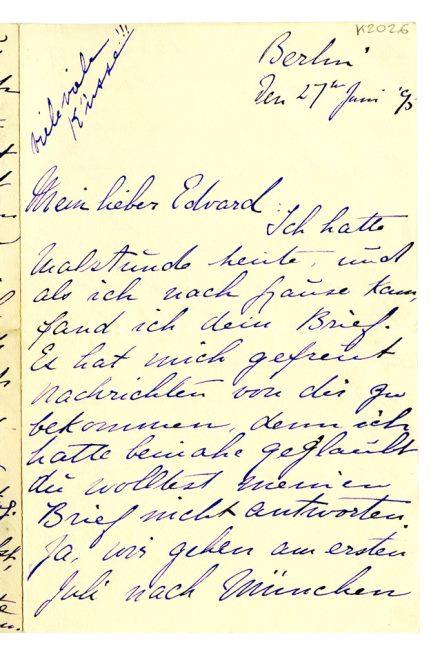 K2026
viele viele
Küsse!!!
Berlin
Den 27ten Juni '95
Mein lieber Edvard
Ich hatte
Malstunde heute, und
als ich nach Hause kam,
fand ich dein Brief.
Es hat mich gefreut
Nachrichten von dir zu
bekommen, denn ich
hatte beinahe geglaubt
du wolltest meinen
Brief nicht antworten.
Ja, wir gehen am ersten
Juli nach München